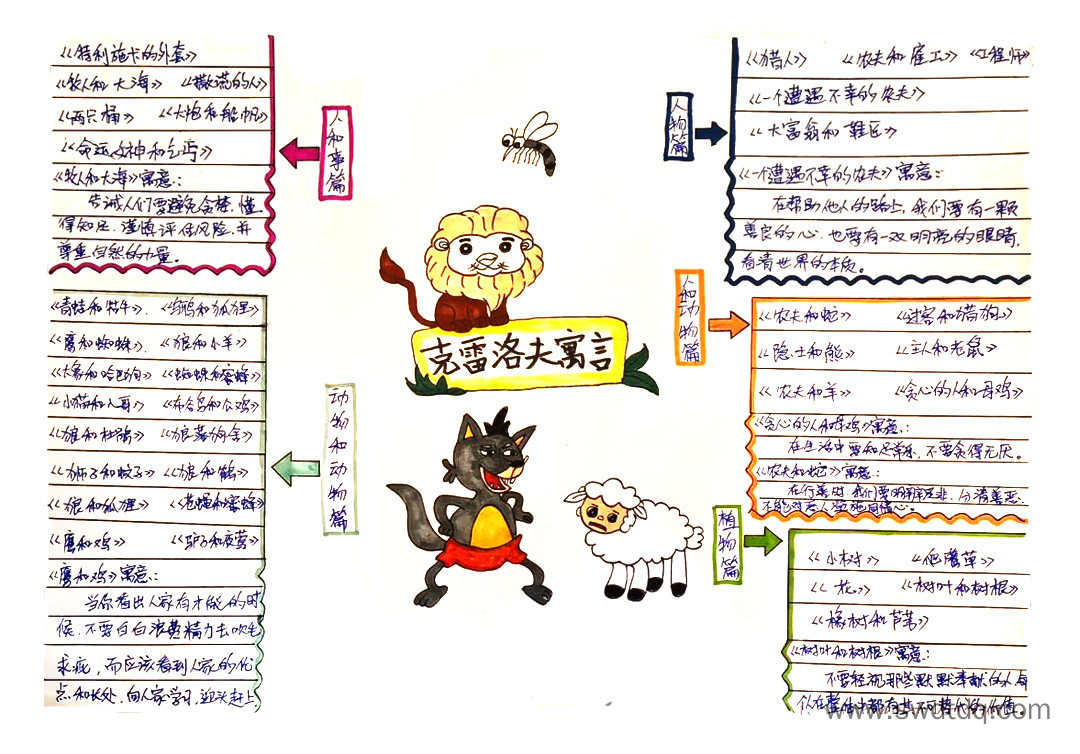 《特利施卡的外套》
《牧人和大海》 《撒谎的人》
《两只桶》 《大炮和船帆》
《命运女神和乞丐》
《牧人和大海》寓意：
告诫人们要避免贪婪，懂
得知足，谨慎评估风险，并
尊重自然的力量。
人和事篇
人物篇
《猎人》 《农夫和雇工》 《工程师》
《一个遭遇不幸的农夫》
《大富翁和鞋匠》
《一个遭遇不幸的农夫》寓意：
在帮助他人的路上，我们要有一颗
善良的心，也要有一双明亮的眼睛，
看清世界的本质。
克雷洛夫寓言
《青蛙和犍牛》. 《乌鸦和狐狸》
《鹰和蜘蛛》. 《狼和小羊》
《大象和哈巴狗》 《蜘蛛和蜜蜂》
《小猫和八哥》 《布谷鸟和公鸡》
《狼和杜鹃》 《狼落狗舍》
《狮子和蚊子》 《狼和鹤》
《狼和狐狸》 《苍蝇和蜜蜂》
《鹰和鸡》 《驴子和夜莺》
《鹰和鸡》寓意：
当你看出人家有才能的时
候，不要白白浪费精力去吹毛
求疵，而应该看到人家的优
点和长处，向人家学习，迎头赶上
动物和动物篇
人和动物篇
《农夫和蛇》 《过客和猎狗》
《隐士和熊》 《主人和老鼠》
《农夫和羊》 《贪心的人和母鸡》
《贪心的人和母鸡》寓意：
在生活中要知足常乐，不要贪得无厌。
《农夫和蛇》寓意：
在行善时，我们要明辨是非，分清善恶，
不能对恶人实施同情心。
植物篇
《小树》 《爬蔓草》
《花》 《树叶和树根》
《橡树和芦苇》
《树叶和树根》寓意：
不要轻视那些默默奉献的人，每
个人在整体中都有其不可替代的价值。
www.swdtdq.com